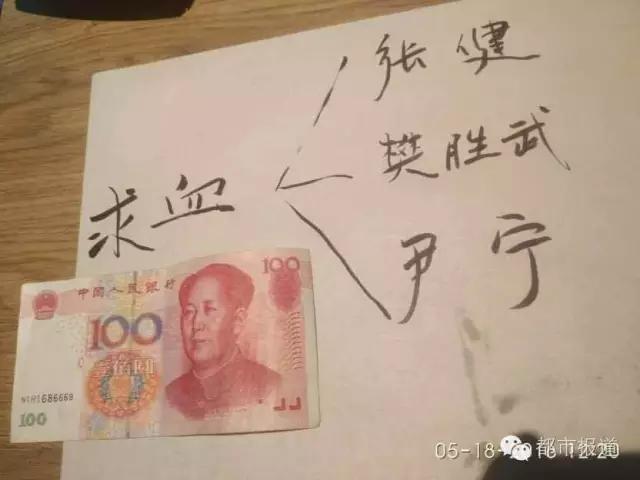 张健
樊胜武
求血
尹宁
中国人民银行
100
100
壹佰圆
100
05-18-2016 12:20
都市报道